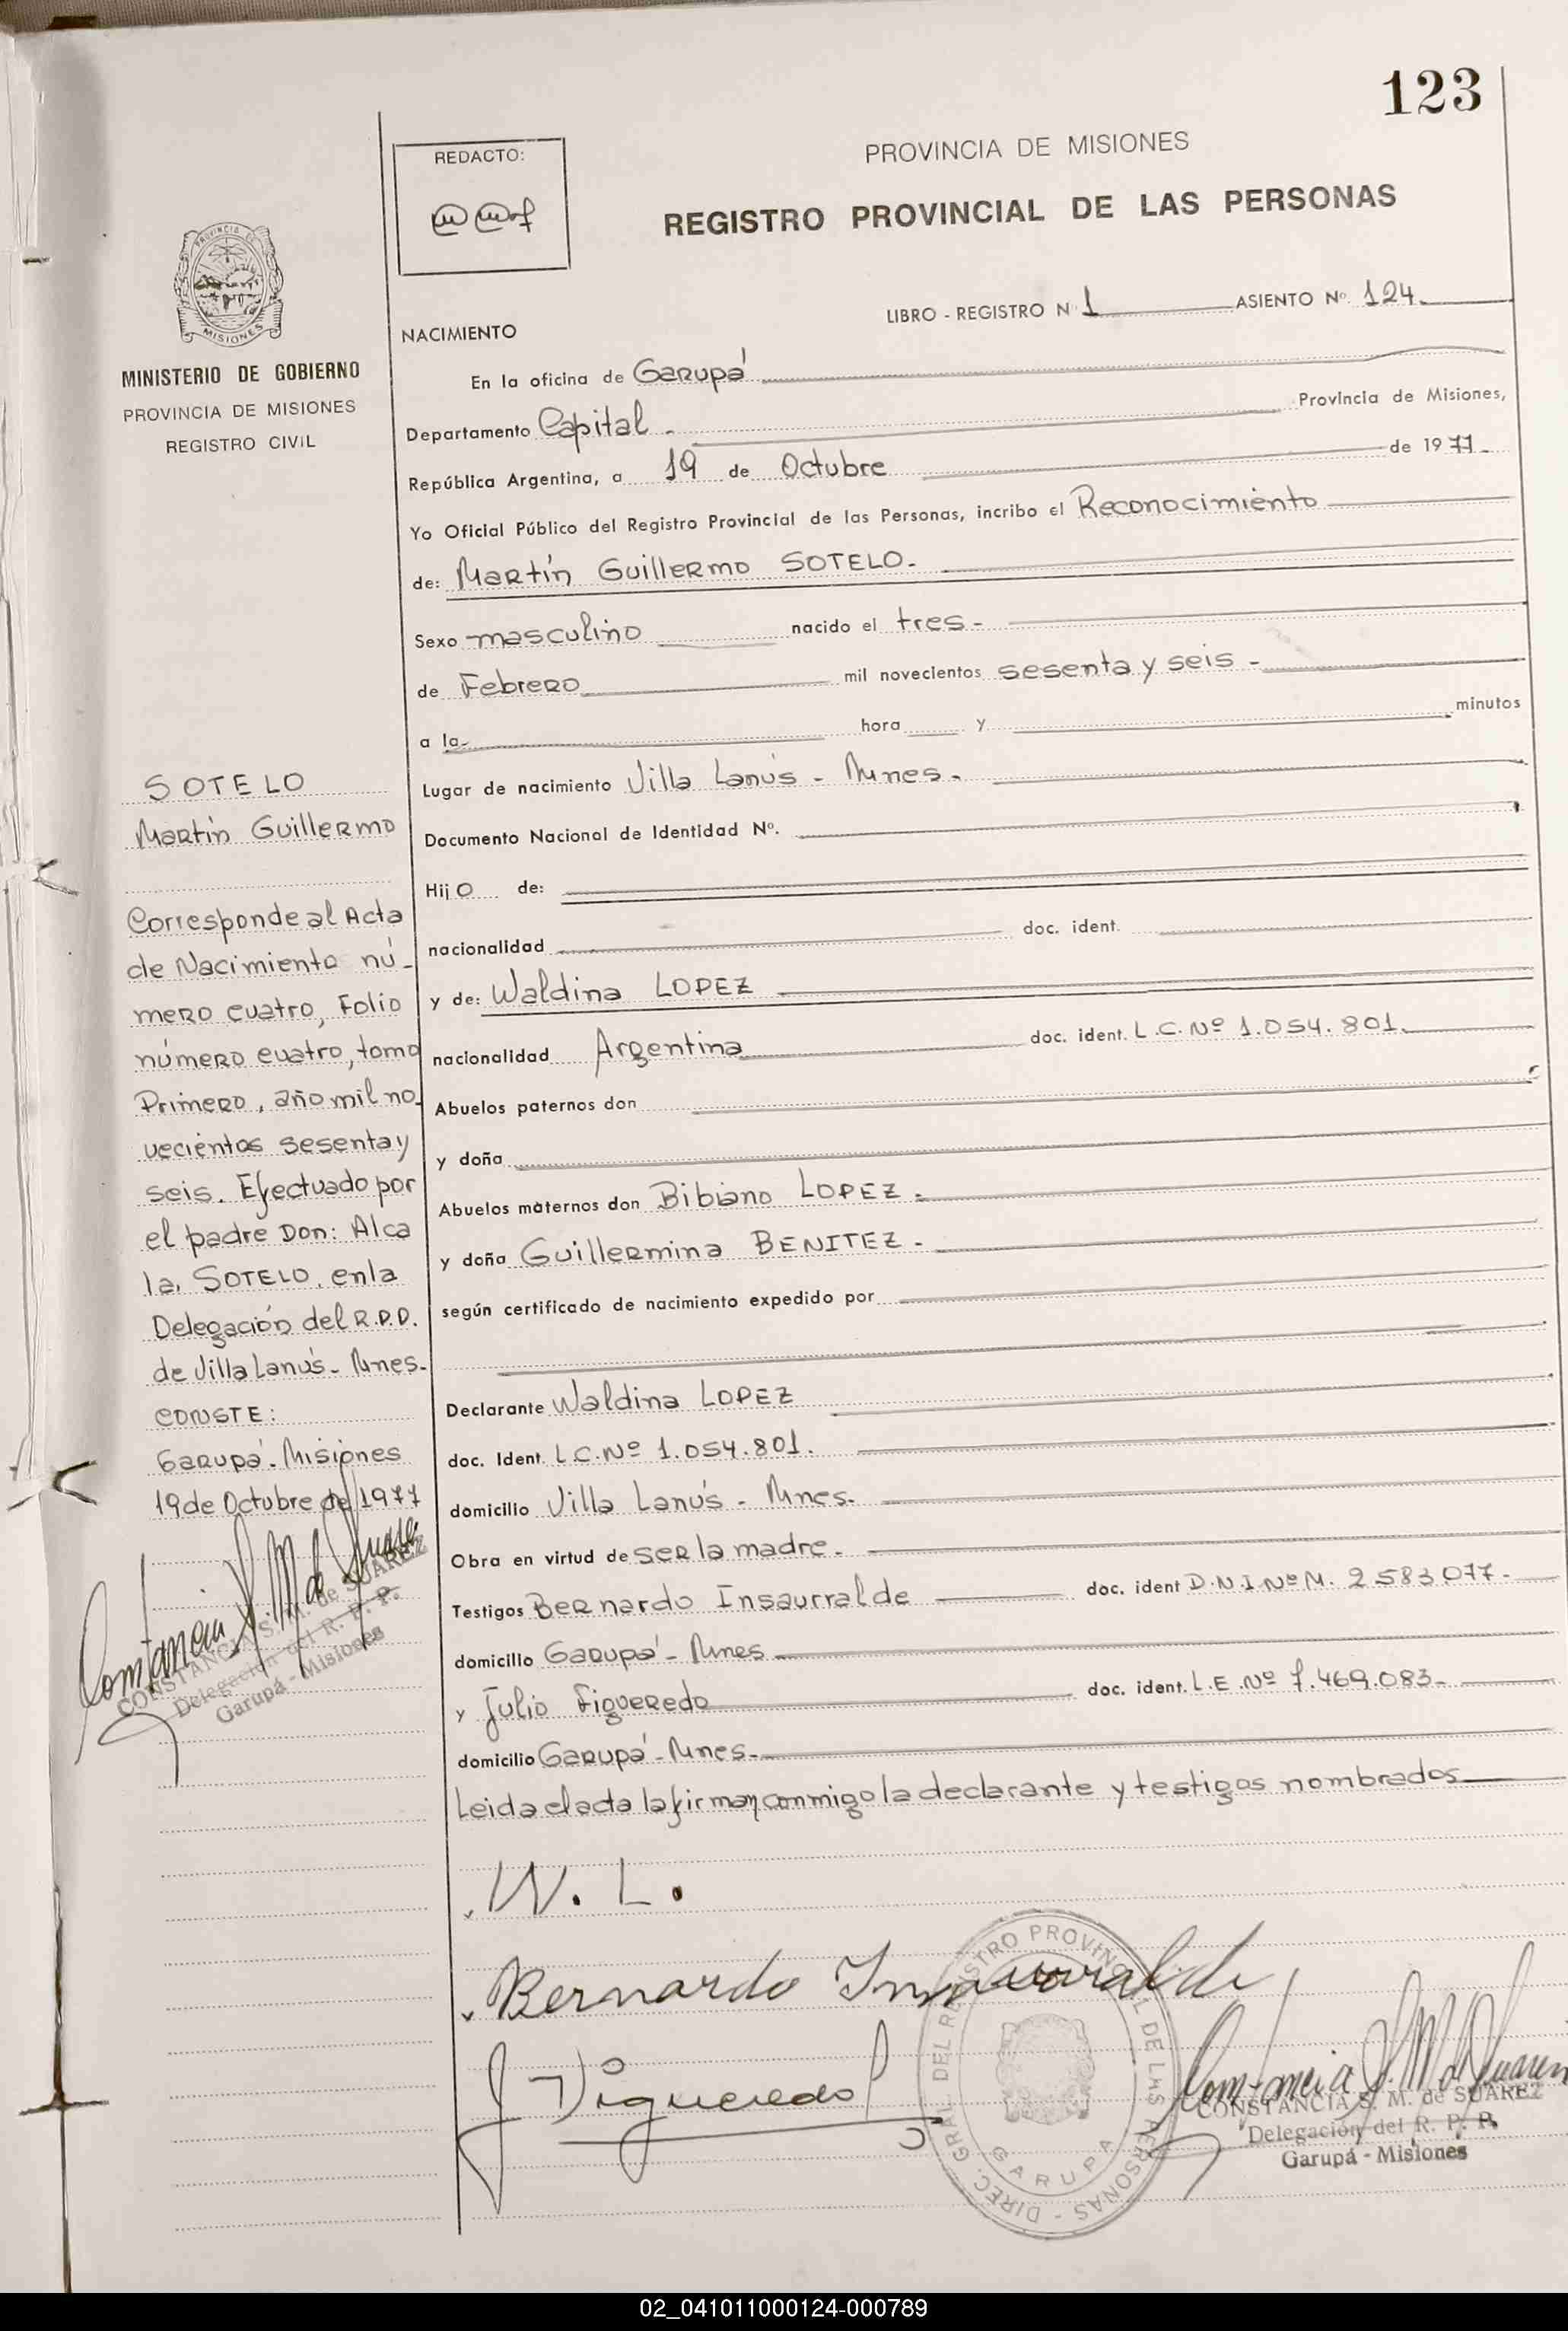 123
REDACTO:
PROVINCIA DE MISIONES
REGISTRO PROVINCIAL DE LAS PERSONAS
PROVINCIA DE
MISIONES
MINISTERIO DE GOBIERNO
PROVINCIA DE MISIONES
REGISTRO CIVIL
LIBRO - REGISTRO N 1 ASIENTO Nº. 124.
NACIMIENTO
En la oficina de Garupá
Departamento Capital - Provincia de Misiones,
República Argentina, a 19 de Octubre de 1977-
Yo Oficial Público del Registro Provincial de las Personas, incribo el Reconocimiento
de: Martín Guillermo SOTELO.
Sexo masculino nacido el tres-
de Febrero mil novecientos sesenta y seis -
a la- hora y minutos
Lugar de nacimiento Villa Lanús - Mnes.
Documento Nacional de Identidad Nº.
Hijo de:
nacionalidad doc. ident.
y de: Waldina LOPEZ
nacionalidad Argentina doc. ident. L.C. Nº 1.054.801.
Abuelos paternos don
y doña
Abuelos maternos don Bibiano LOPEZ.
y doña Guillermina BENITEZ.
según certificado de nacimiento expedido por
Declarante Waldina LOPEZ
doc. Ident. L.C. Nº 1.054.801.
domicilio Villa Lanús - Mnes.
Obra en virtud de ser la madre.
Testigos Bernardo Insaurralde doc. ident D.N.I Nº M. 2583077-
domicilio Garupá - Mnes
y Julio Figueredo doc. ident. L.E. Nº 7.469.083-
domicilio Garupá - Mnes-
Leida el acta la firman conmigo la declarante y testigos nombrados
SOTELO
Martín Guillermo
Corresponde al Acta
de Nacimiento nú-
mero cuatro, Folio
número cuatro, tomo
Primero, año mil no
vecientos sesenta y
seis. Efectuado por
el padre Don: Alca
la, SOTELO, en la
Delegación del R.P.P.
de Villa Lanús - Mnes.
CONSTE:
Garupá - Misiones
19 de Octubre de 1977
Constancia S. M. de Suarez
CONSTANCIA S. M. de SUAREZ
Delegación del R. P. P.
Garupá - Misiones
W. L.
Bernardo Insaurralde
J Figueredo
DIREC. GRAL. DEL REGISTRO PROVINCIAL DE LAS PERSONAS -
GARUPA
Constancia S. M. d Suarez
CONSTANCIA S. M. de SUAREZ
Delegación del R. P. P.
Garupá - Misiones
02_041011000124-000789